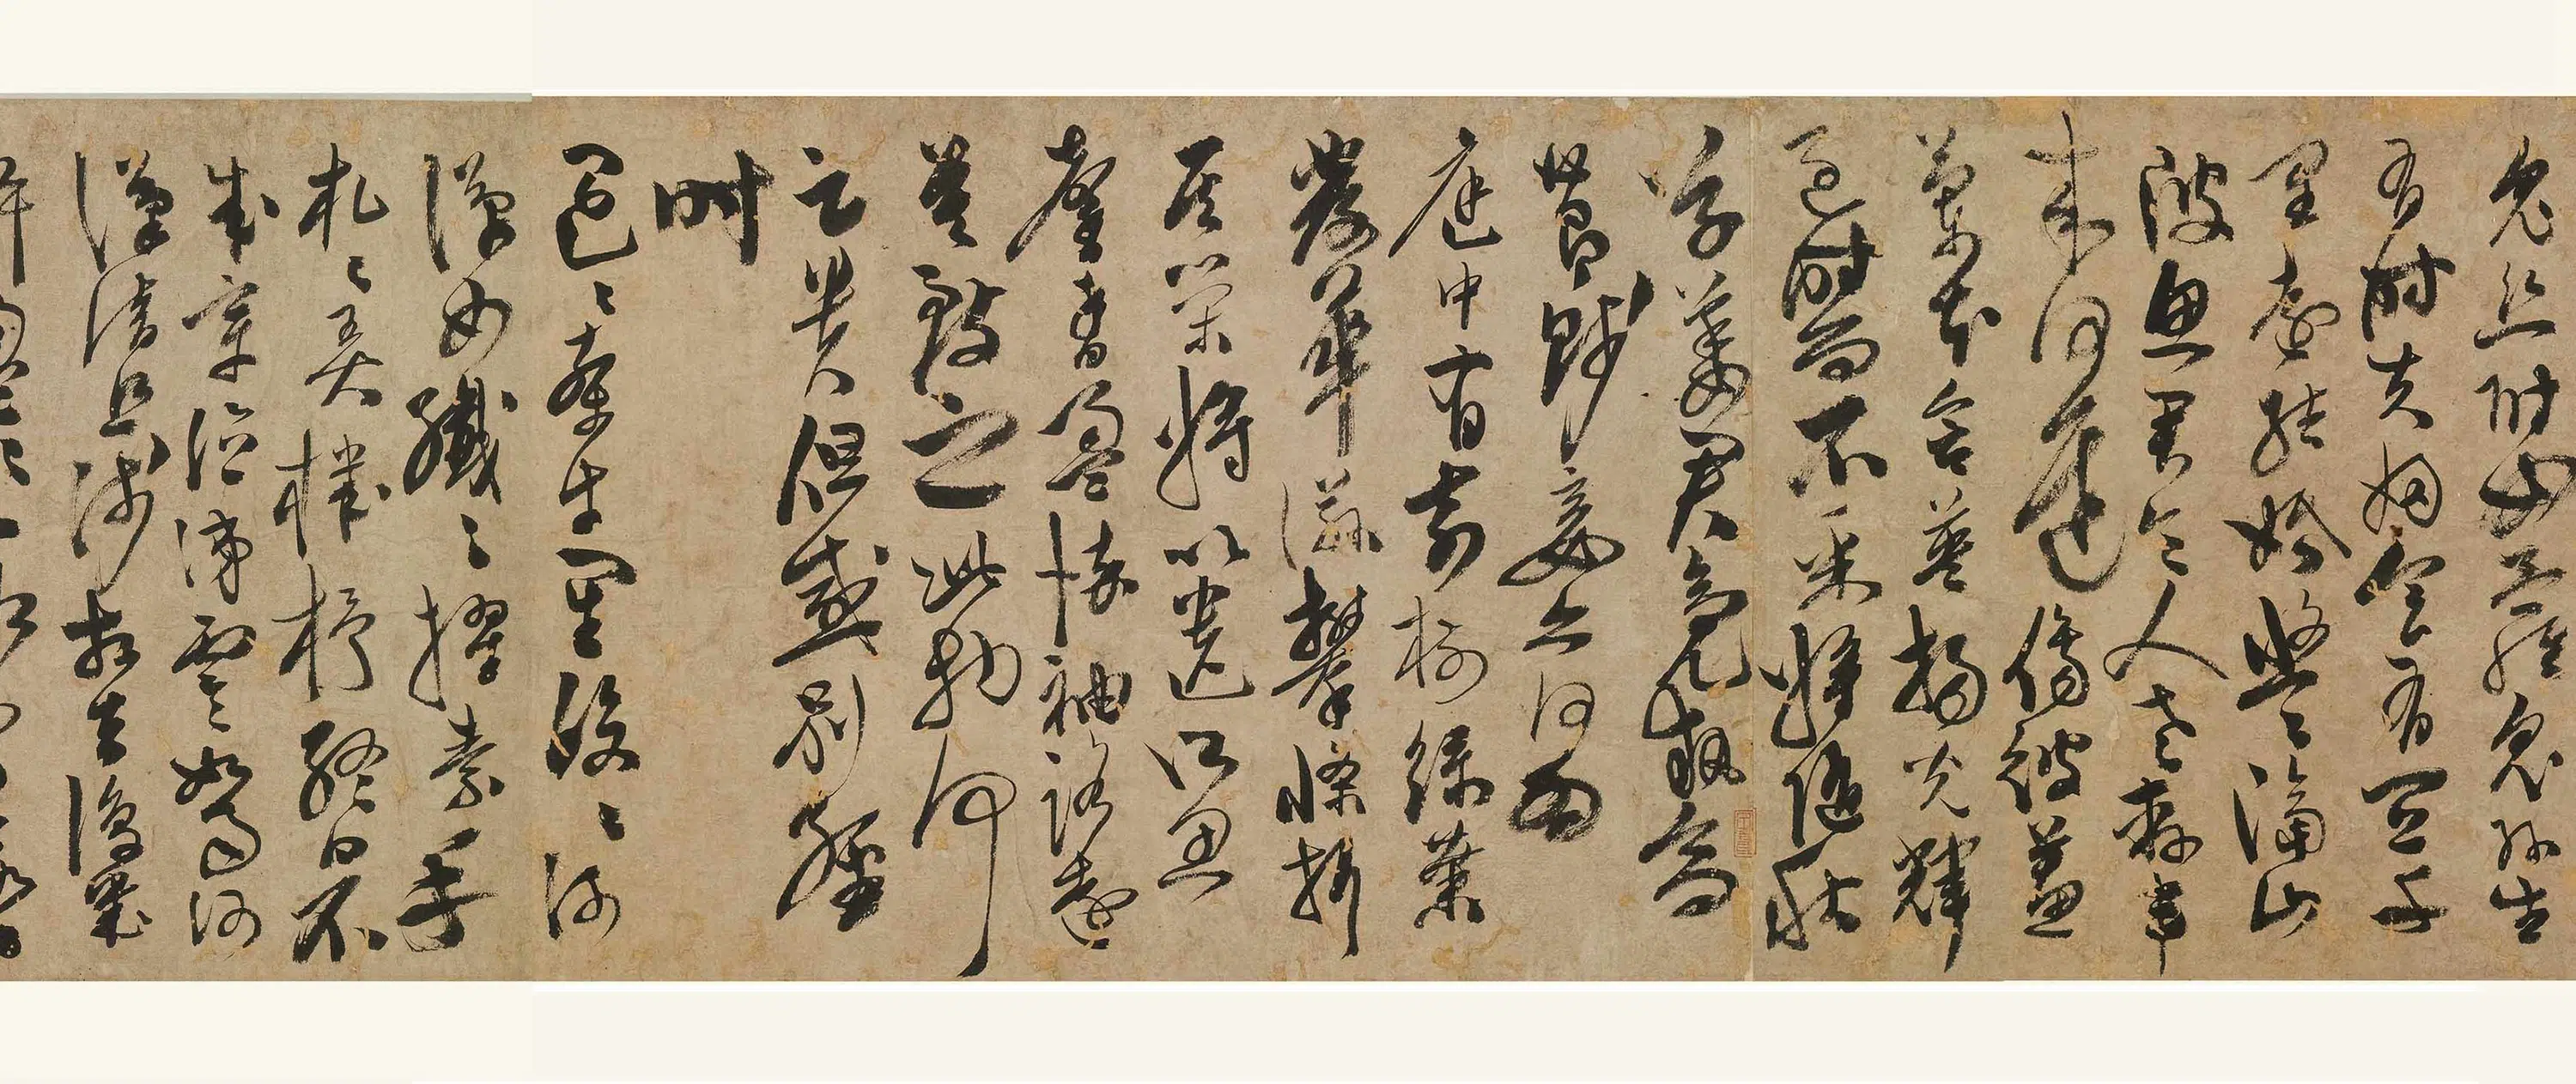 兔絲附女蘿兔絲生
有時夫婦會有宜千
里遠結婚悠悠隔山
陂思君令人老軒車
來何遲傷彼蕙
蘭花含英揚光輝
過時而不采將隨秋
草萎君亮執高
節賤妾亦何為
庭中有奇樹綠葉
發華滋攀條折
其榮將以遺所思
馨香盈懷袖路遠
莫致之此物何
貴但感別經
時
迢迢牽牛星皎皎河
漢女纖纖擢素手
札札弄機杼終日不
成章泣涕零如雨河
漢清且淺相去復幾
許盈盈一水